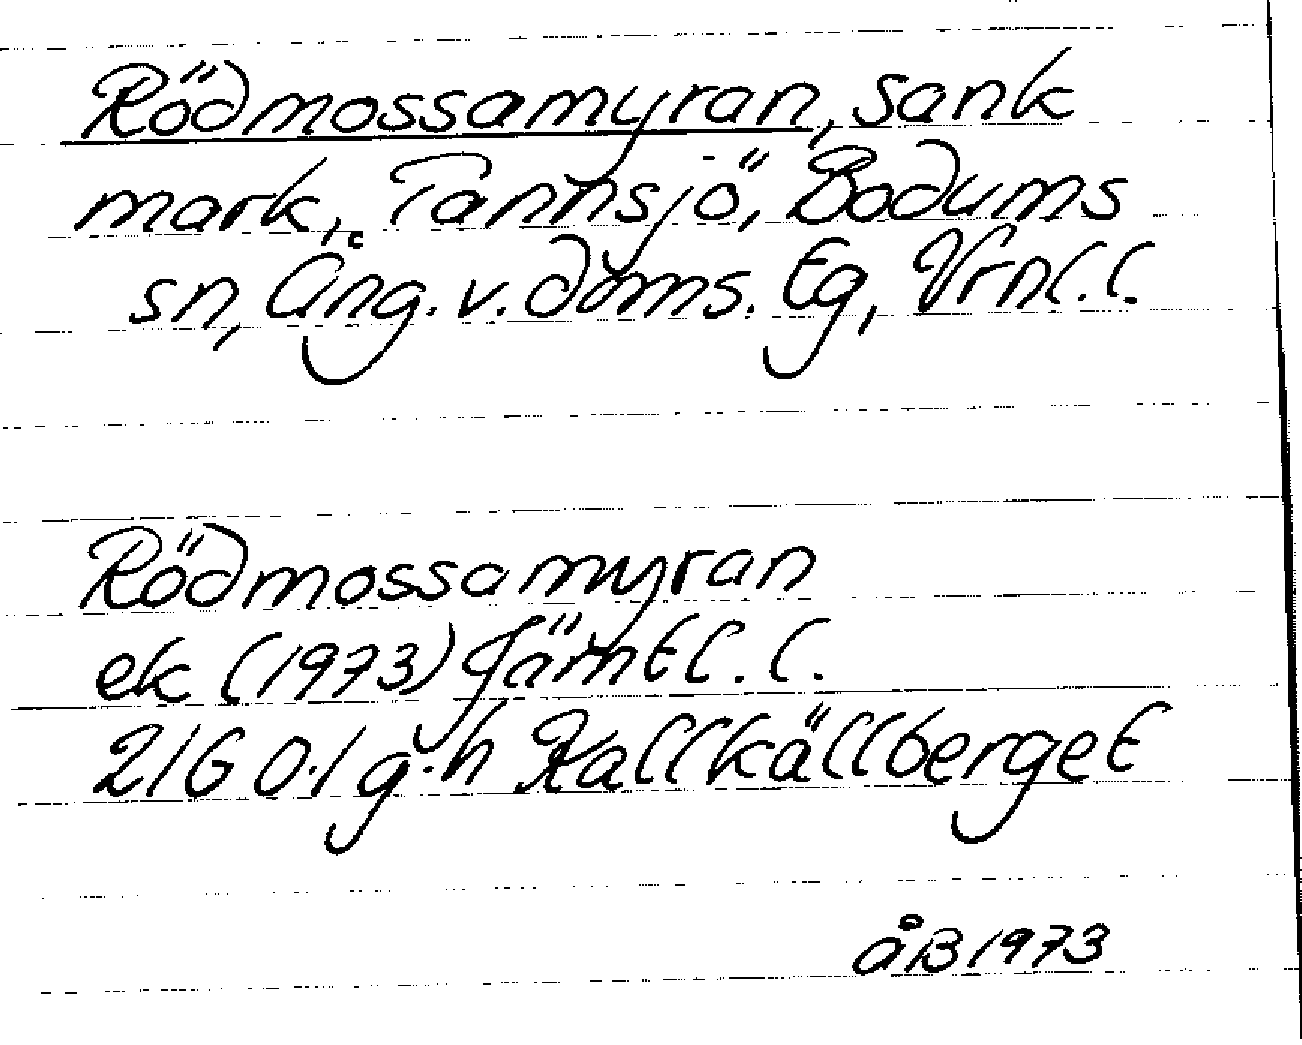 Rödmossamyran, sank
mark, Tannsjö, Bodums
sn, Ång. v. doms. tg, Vrnl. l.
Rödmossamyran
ek (1973) Jämtl. l.
21G 0-1 g-h Kallkällberget
åB 1973